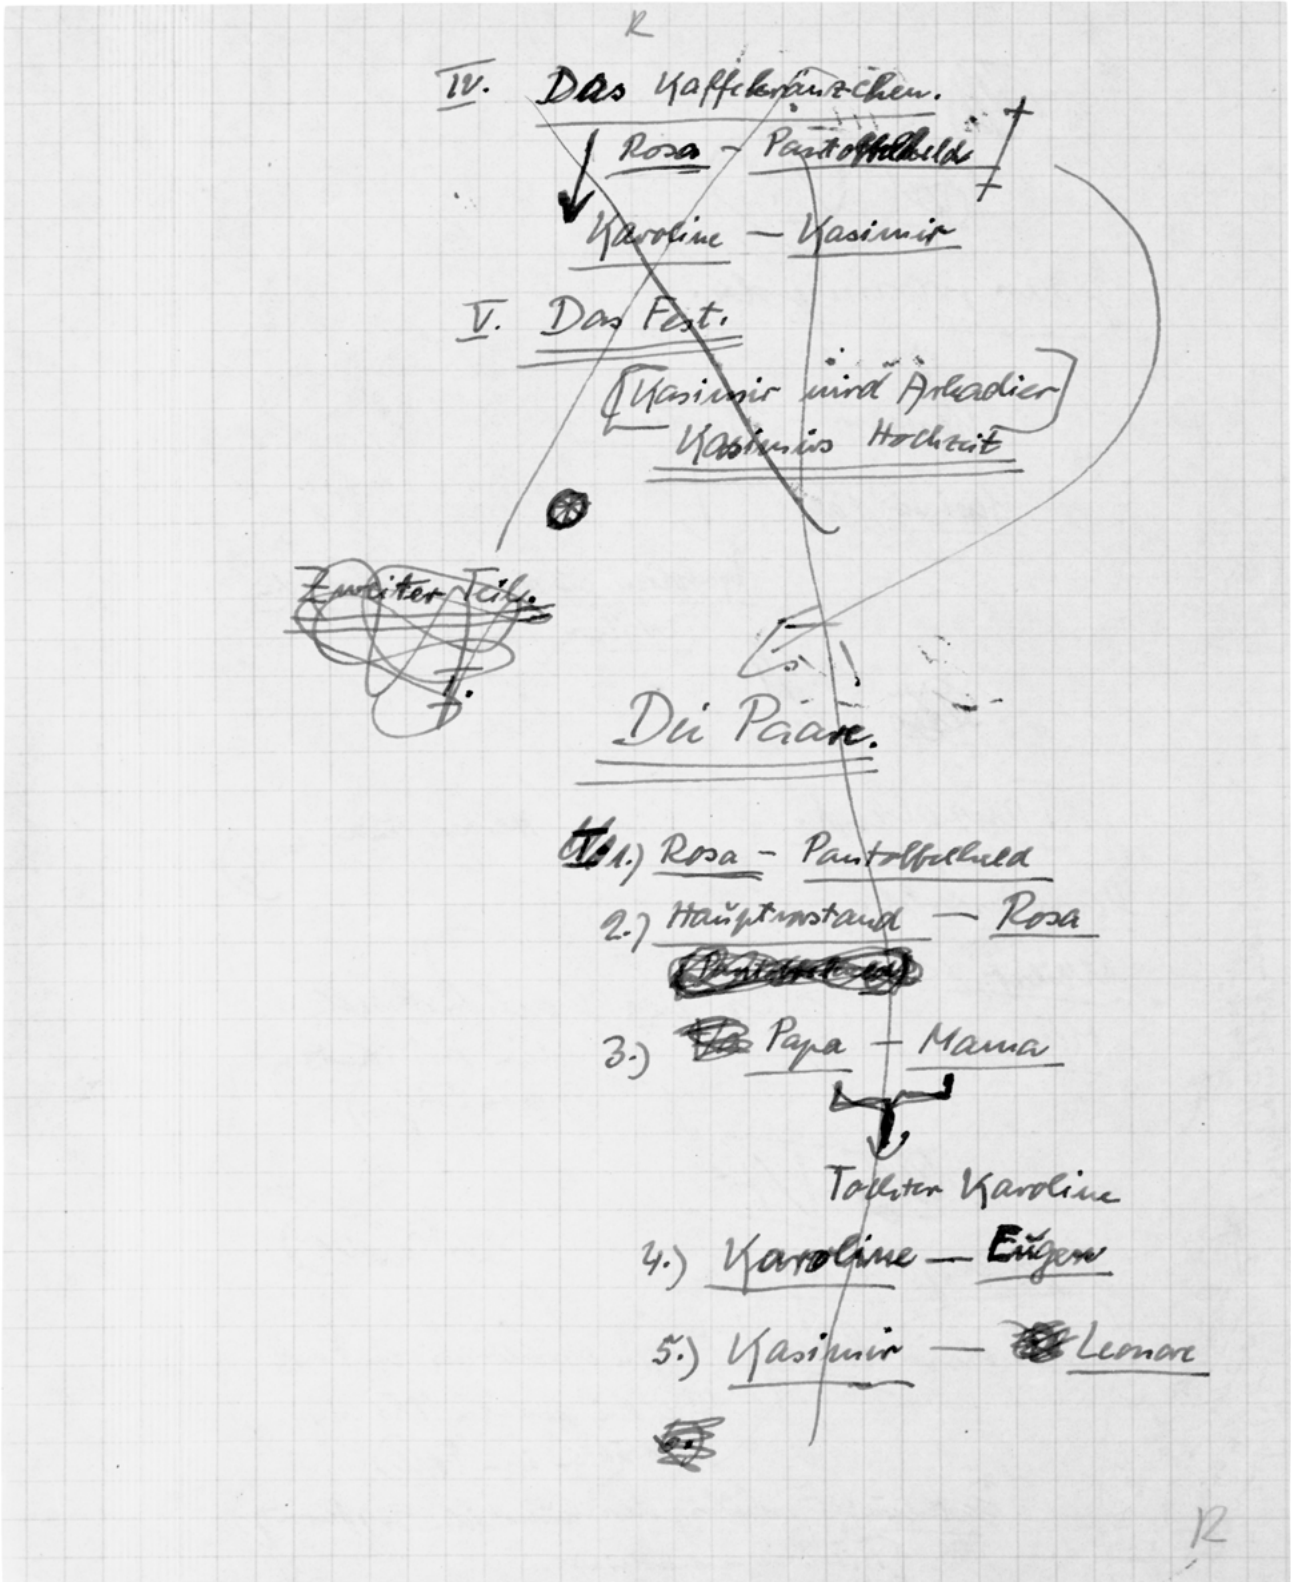 R
IV. Das Kaffekränzchen.
Rosa - Pantoffelheld
Karoline - Kasimir
V. Das Fest.
[Kasimir wird Arkadier]
Kasimirs Hochzeit
Zweiter Teil.
I.
Die Paare.
I. 1.) Rosa - Pantoffelheld
2.) Hauptvorstand - Rosa
(Pantoffelheld)
3.) Papa - Mama
Tochter Karoline
4.) Karoline - Eugen
5.) Kasimir - Leonore
R